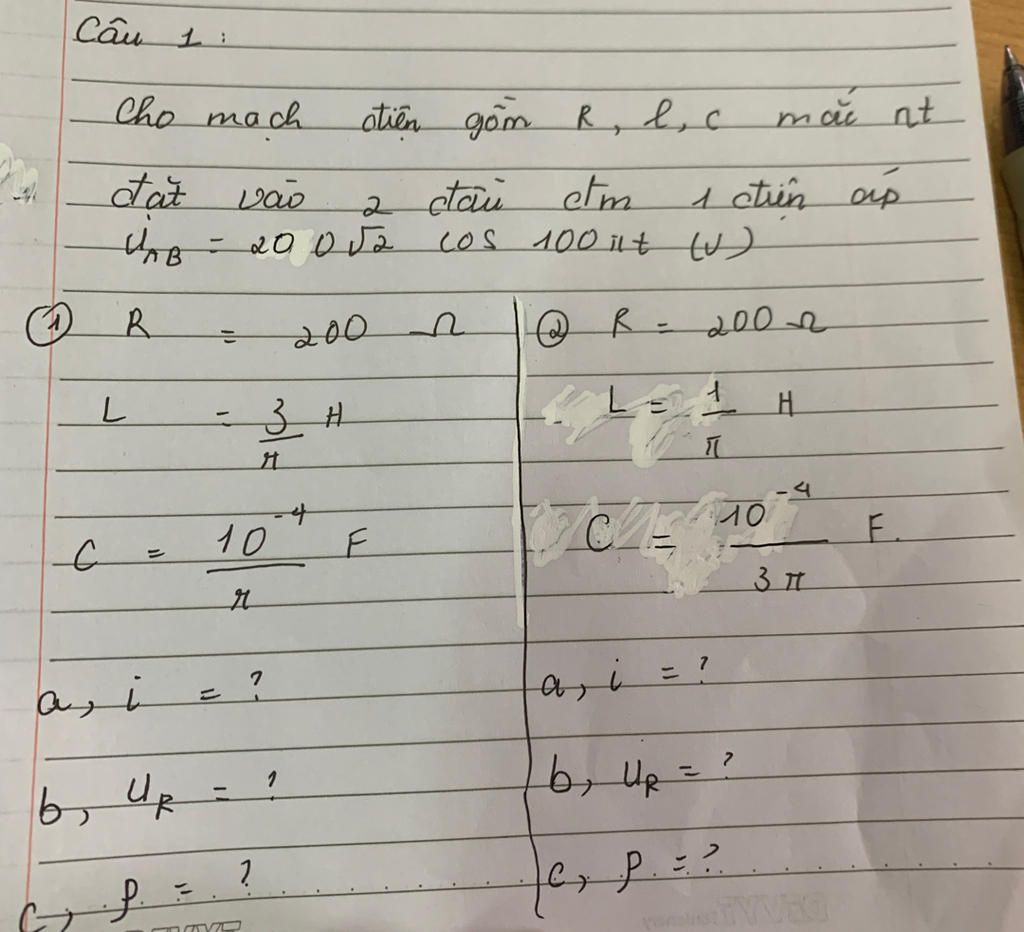 Câu 1 :
Cho mạch điện gồm R, l, c mắc nt
đặt vào 2 đầu đm 1 điện áp
u_AB = 200√2 cos 100πt (V)
① R = 200 Ω
L = 3/π H
C = 10⁻⁴/π F
a, i = ?
b, u_R = ?
c, P = ?
② R = 200 Ω
L = 1/π H
C = 10⁻⁴/3π F.
a, i = ?
b, u_R = ?
c, P = ?